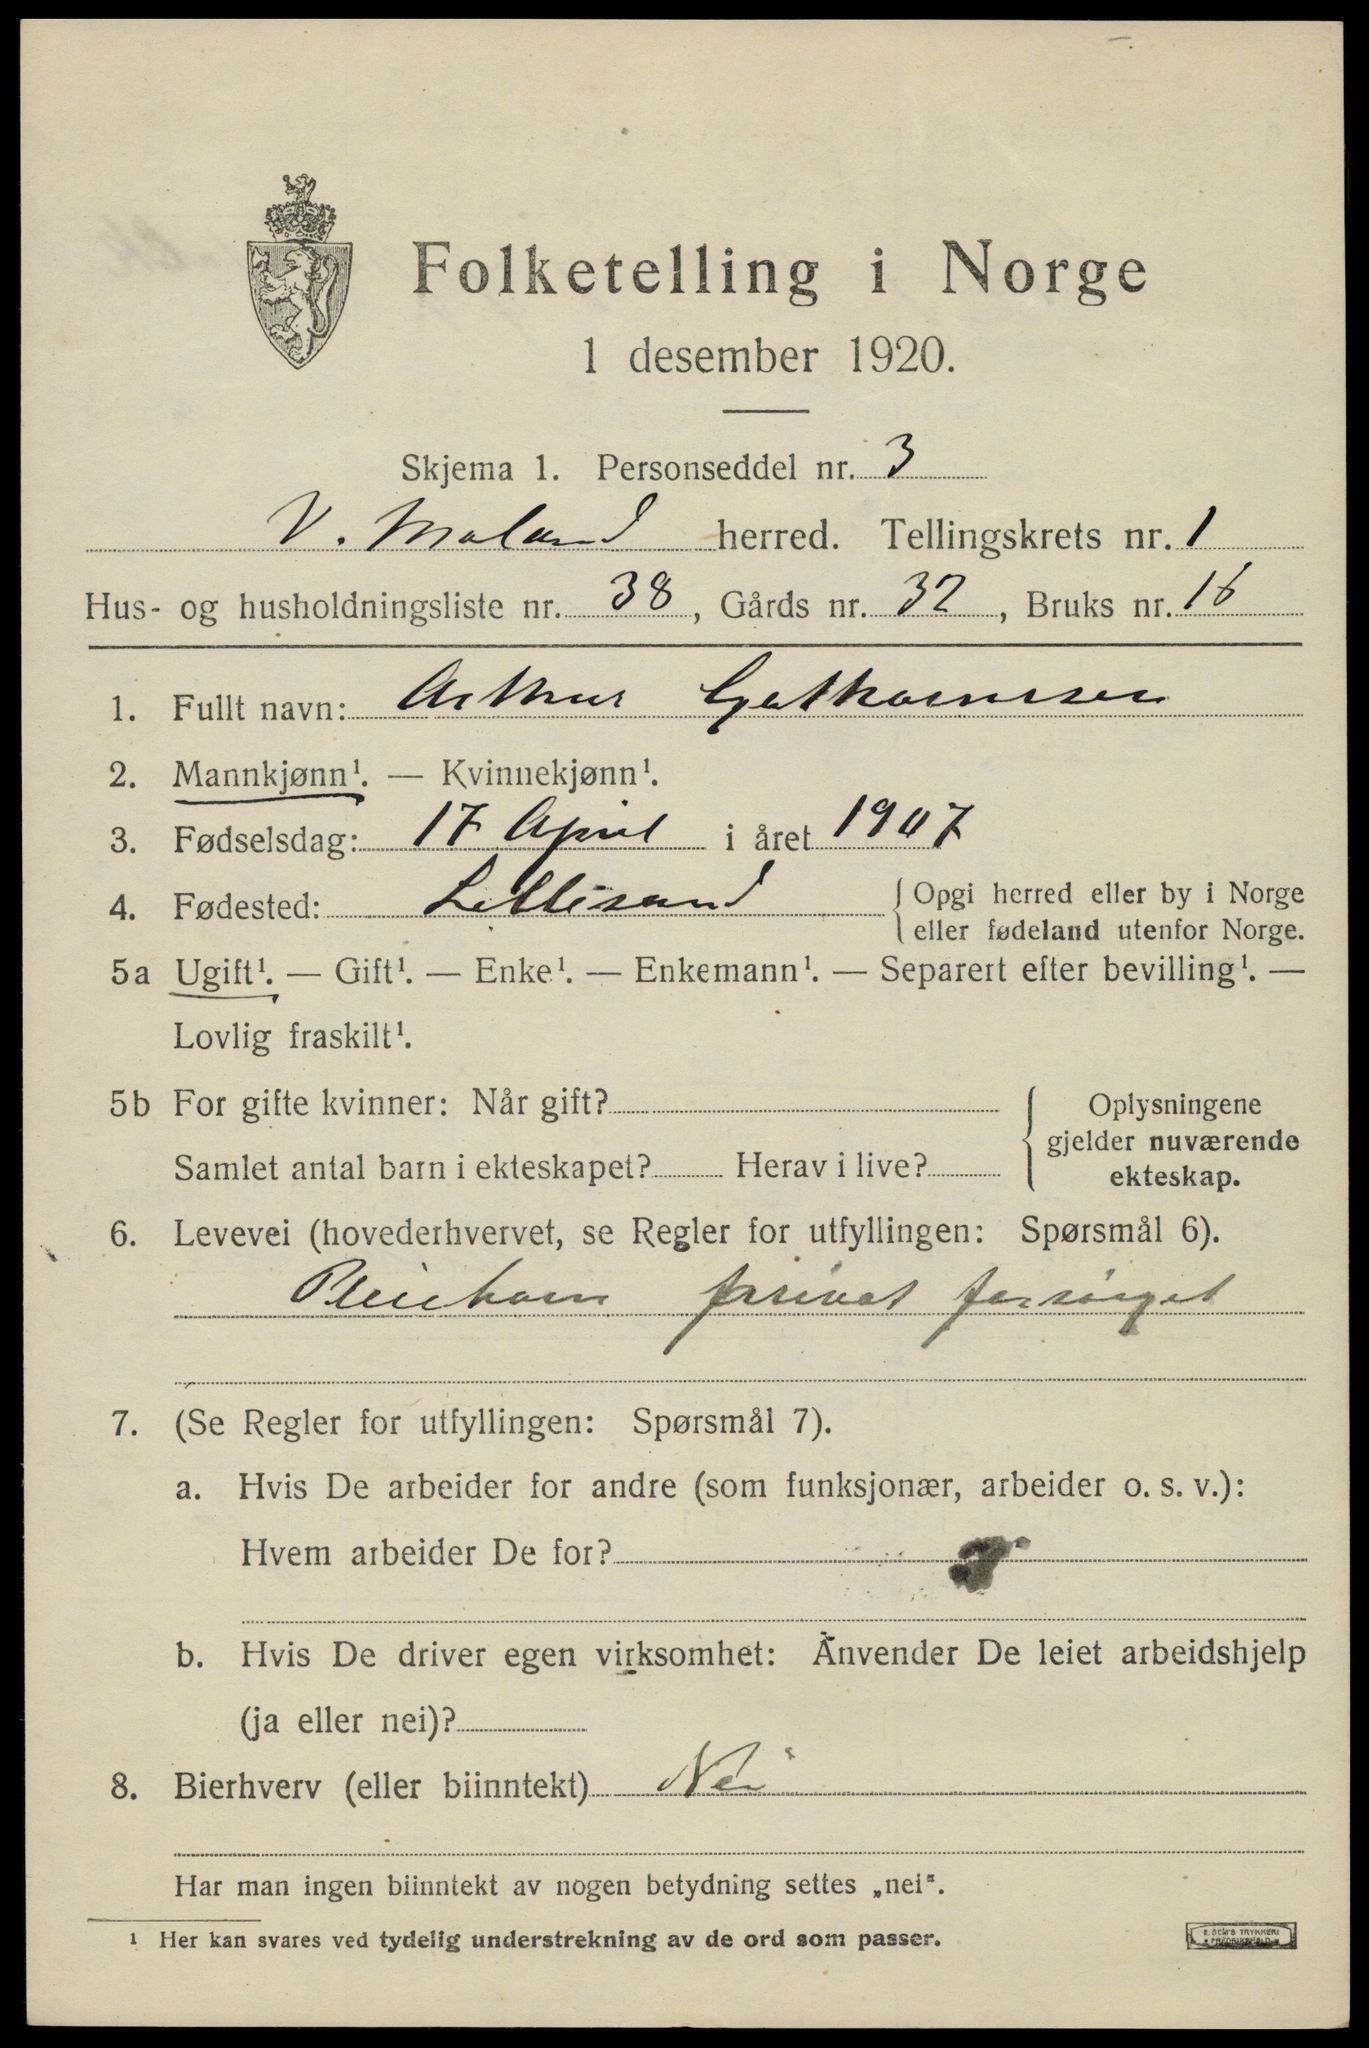 Folketelling i Norge
1 desember 1920.
Skjema 1. Personseddel nr. 3
V. Moland herred. Tellingskrets nr. 1
Hus- og husholdningsliste nr. 38, Gårds nr. 32, Bruks nr. 16
1. Fullt navn: Arthur
2. Mannkjønn¹. — Kvinnekjønn¹.
3. Fødselsdag: 17 April i året 1907
4. Fødested: Lillesand { Opgi herred eller by i Norge
eller fødeland utenfor Norge.
5a Ugift¹. — Gift¹. — Enke¹. — Enkemann¹. — Separert efter bevilling¹. —
Lovlig fraskilt¹.
5b For gifte kvinner: Når gift?
Samlet antal barn i ekteskapet? Herav i live?
{ Oplysningene
gjelder nuværende
ekteskap.
6. Levevei (hovederhvervet, se Regler for utfyllingen: Spørsmål 6).
Pleiebarn privat forsörget
7. (Se Regler for utfyllingen: Spørsmål 7).
a. Hvis De arbeider for andre (som funksjonær, arbeider o. s. v.):
Hvem arbeider De for?
b. Hvis De driver egen virksomhet: Anvender De leiet arbeidshjelp
(ja eller nei)?
8. Bierhverv (eller biinntekt) Nei
Har man ingen biinntekt av nogen betydning settes „nei".
¹ Her kan svares ved tydelig understrekning av de ord som passer.
E. SEM'S TRYKKERI
FREDRIKSHALD